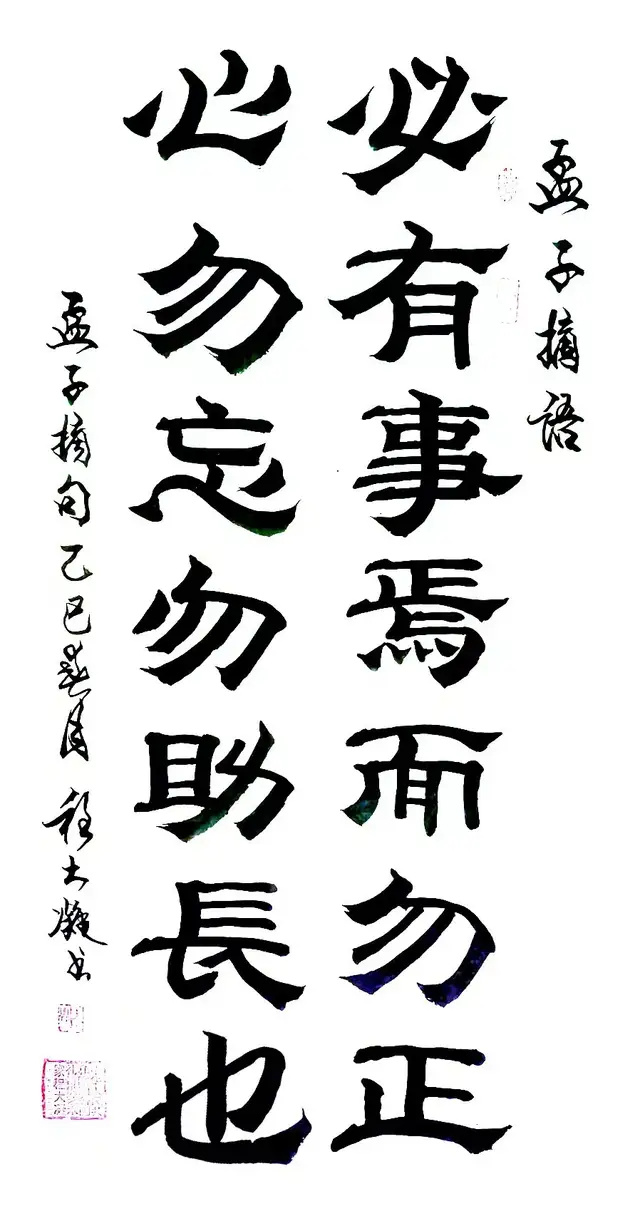 孟子摘語
必有事焉而勿正
心勿忘勿助長也
孟子摘句乙巳蓝月程大凝书